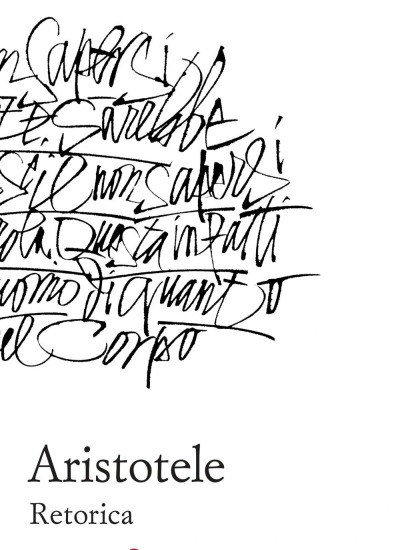 n sapersi
. Sarebbe
se il non sapersi
ola. Questa infatti
uomo di quanto
el Corpo
Aristotele
Retorica